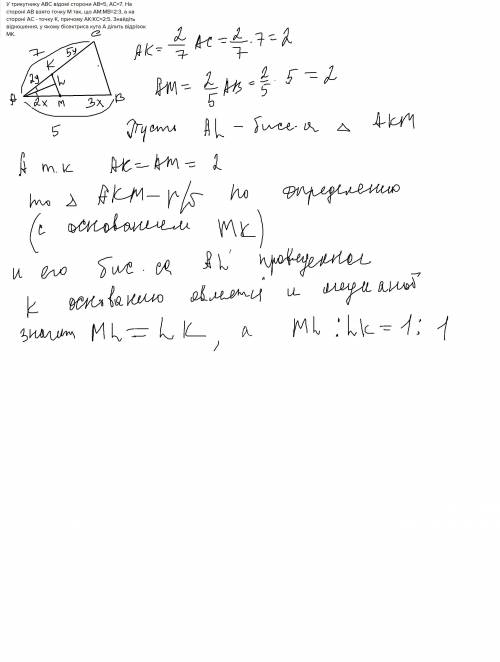 У трикутнику ABC відомі сторони AB=5, AC=7. На
стороні AB взято точку M так, що AM:MB=2:3, а на
стороні AC - точку K, причому AK:KC=2:5. Знайдіть
відношення, у якому бісектриса кута A ділить відрізок
MK.
C
7
5y
K
2y
L
A
2x
M
3x
B
5
AK = 2/7 AC = 2/7 · 7 = 2
AM = 2/5 AB = 2/5 · 5 = 2
Пусть AL – бисс-а △ AKM
А т.к AK = AM = 2
то △ AKM – р/б по определению
(с основанием MK)
и его бис.са AL проведенная
к основанию является и медианой
значит ML = LK, а ML : LK = 1 : 1